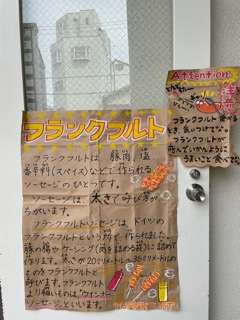 フランクフルト
フランクフルトは、豚肉、塩
香辛料(スパイス)などで作られる
ソーセージのひとつです。
ソーセージは太さで呼び方が
ちがいます。
フランクフルトソーセージは、ドイツの
フランクフルトという所で作られました。
豚の腸やケーシング(肉を詰める袋)に詰めて
作ります。太さが20ミリメートル〜36ミリメートルの
ものをフランクフルトと
呼びます。フランクフルト
より細いものは"ウインナー
ソーセージ"といいます。
Attention
注意
フランクフルト食べる
とき、気いつけてな。
フランクフルトが